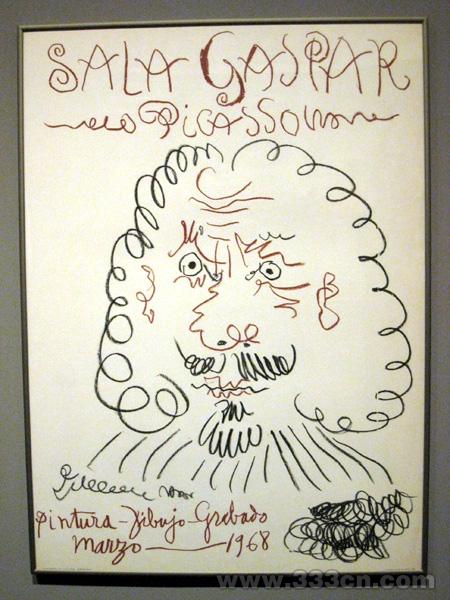 SALA GASPAR
Picasso
Pintura - Dibujo - Grabado
Marzo — 1968
www.333cn.com